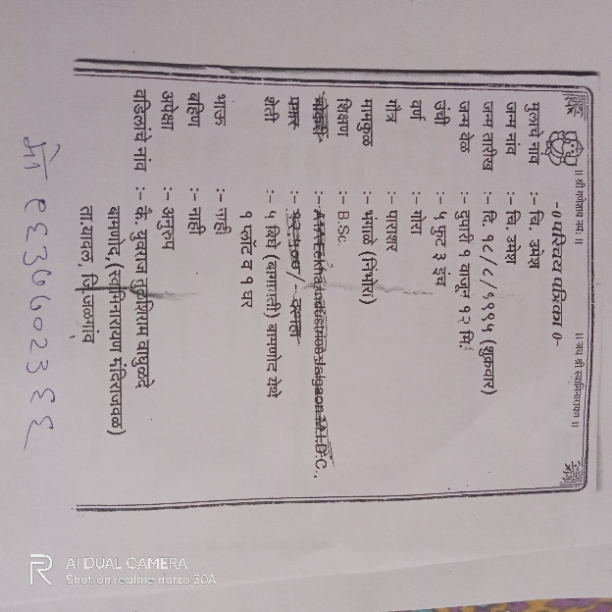 || श्री गणेशाय नमः || || जय श्री स्वामिनारायण ||
-० परिचय पत्रिका ०-
मुलाचे नाव :- चि. उमेश
जन्म नांव :- चि. उमेश
जन्म तारीख :- दि. १८/८/१९९५ (शुक्रवार)
जन्म वेळ :- दुपारी १ वाजून १२ मि.
उंची :- ५ फुट ३ इंच
वर्ण :- गोरा
गौत्र :- पाराशर
मामकुळ :- भंगाळे (निंभोरा)
शिक्षण :- B.Sc.
नोकरी :- Jalgaon M.I.D.C.,
पगार :- दरमहा
शेती :- ५ बिघे (बामणोद) बामणोद येथे
१ प्लॉट व १ घर
भाऊ :- नाही
बहिण :- नाही
अपेक्षा :- अनुरुप
वडिलांचे नांव :- कै. युवराज तुळशिराम वाघुळदे
बामणोद,(स्वामिनारायण मंदिराजवळ)
ता.यावल, जि.जळगांव
AI DUAL CAMERA
Shot on realme narzo 30A